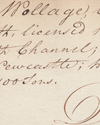 Wollage,
th; licensed
h Channel;
ewcastle; h
00 Sons.
D